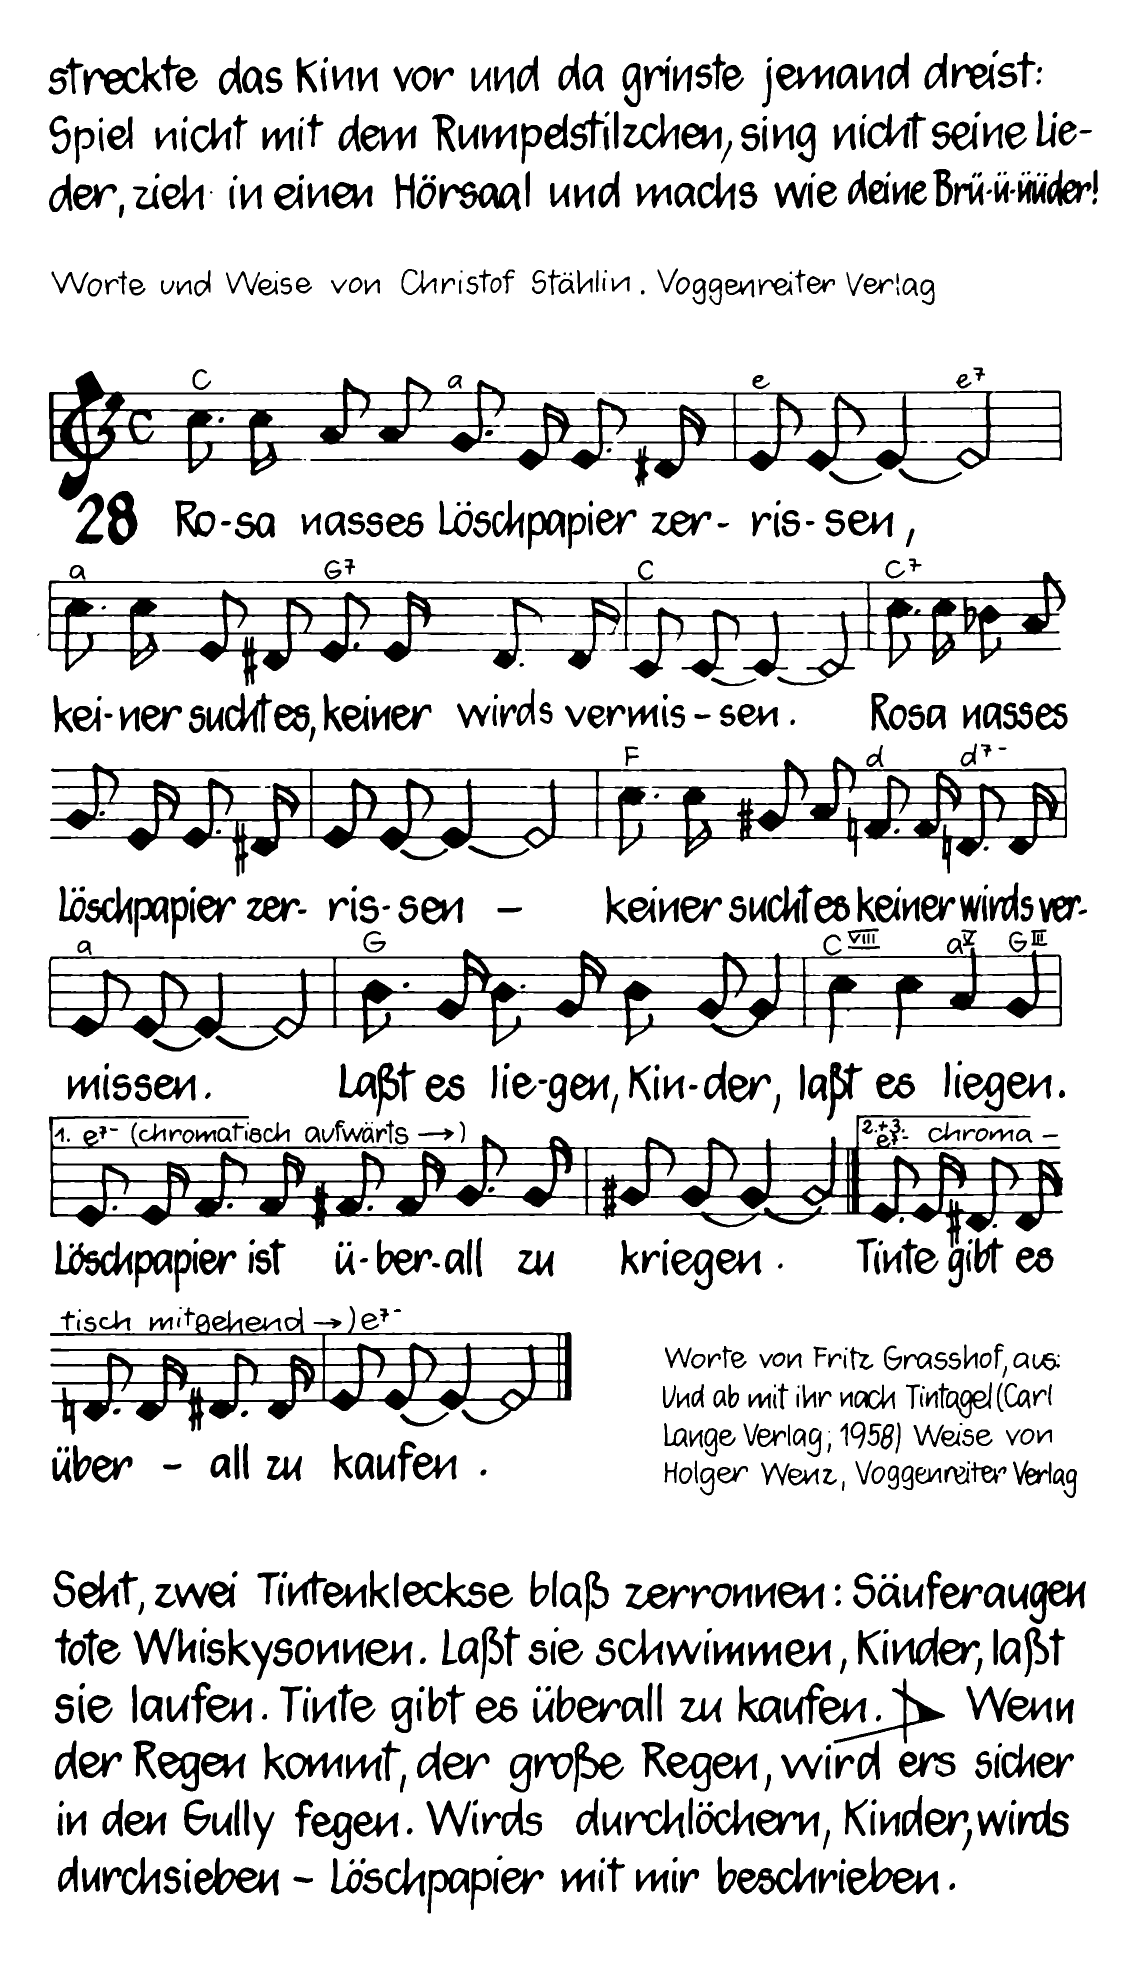 streckte das Kinn vor und da grinste jemand dreist:
Spiel nicht mit dem Rumpelstilzchen, sing nicht seine Lie-
der, zieh in einen Hörsaal und machs wie deine Brü-ü-üüder!
Worte und Weise von Christof Stählin. Voggenreiter Verlag
C a e e7
28 Ro-sa nasses Löschpapier zer- ris- sen,
a G7 C C7
kei-ner sucht es, keiner wirds vermis - sen. Rosa nasses
F d d7-
löschpapier zer- ris- sen – keiner sucht es keiner wirds ver-
a G C VIII a V G III
missen. Laßt es lie-gen, Kin-der, laßt es liegen.
1. e7- (chromatisch aufwärts →) 2.+3. e7- chroma -
Löschpapier ist ü-ber-all zu kriegen. Tinte gibt es
tisch mitgehend →) e7-
über - all zu kaufen.
Worte von Fritz Grasshof, aus:
Und ab mit ihr nach Tintagel (Carl
Lange Verlag, 1958) Weise von
Holger Wenz, Voggenreiter Verlag
Seht, zwei Tintenkleckse blaß zerronnen: Säuferaugen
tote Whiskysonnen. Laßt sie schwimmen, Kinder, laßt
sie laufen. Tinte gibt es überall zu kaufen. Wenn
der Regen kommt, der große Regen, wird ers sicher
in den Gully fegen. Wirds durchlöchern, Kinder, wirds
durchsieben – Löschpapier mit mir beschrieben.